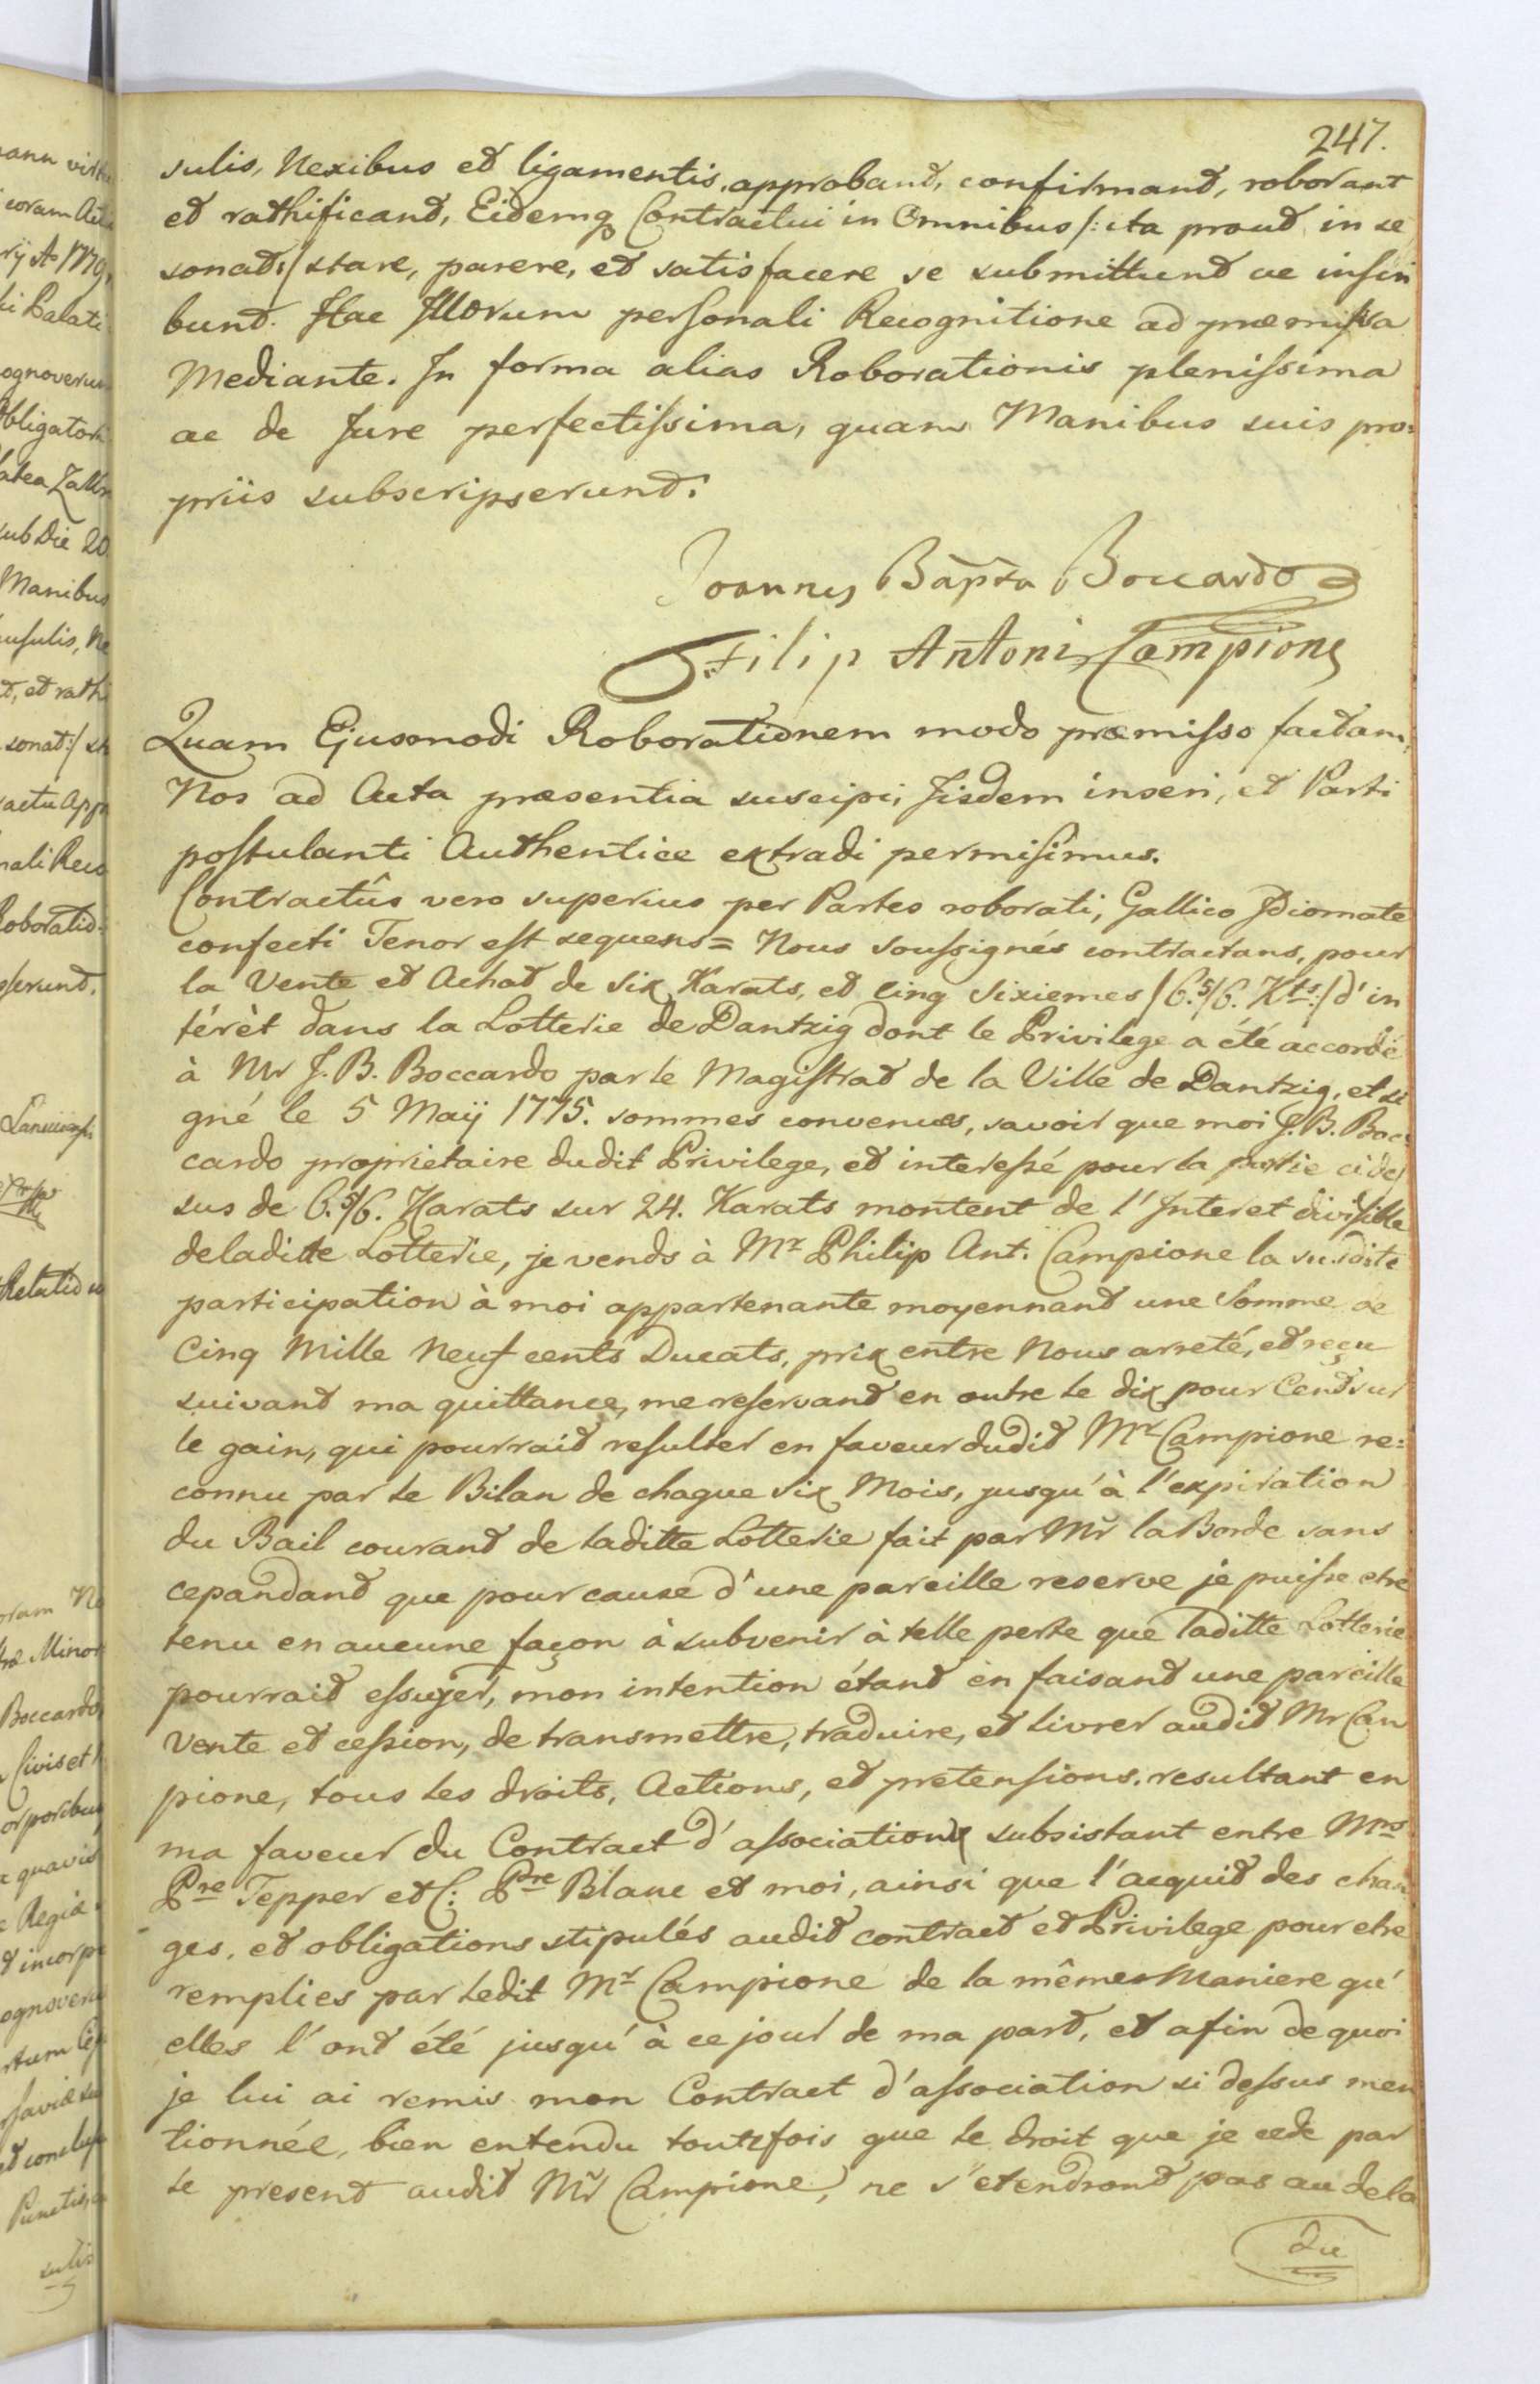 247.
sulis, Nexibus et ligamentis, approbant, confirmant, roborant
et rathificant, Eidemq Contractui in Omnibus /: ita prout in se
sonat :/ stare, parere, et satisfacere se submittunt ac inscri
bunt. Hac Illorum personali Recognitione ad præmissa
Mediante. In forma alias Roborationis plenissima
ac de Jure perfectissima, quam Manibus suis pro=
priis subscripserunt.
Joannes Bapta Boccardo
Filip Antoni Campioni
Quam Ejusmodi Roborationem modo præmisso factam,
Nos ad Acta præsentia suscipi, Iisdem inseri, et Parti
postulanti Authentice extradi permisimus.
Contractûs vero superius per Partes roborati, Gallico Idiomate
confecti Tenor est sequens = Nous soussignés contractans, pour
la Vente et Achat de six Karats, et cinq sixiemes /6.5/6. Kts:/ d'in
térèt dans la Lotterie de Dantzig dont le Privilege a été accordé
à Mr J. B. Boccardo par le Magistrat de la Ville de Dantzig, et si
gné le 5 Maÿ 1775. sommes convenues, savoir que moi J. B. Boc=
cardo proprietaire dudit Privilege, et interessé pour la partie ci des
sus de 6.5/6. Karats sur 24. Karats montent de l'Interet divisible
deladitte Lotterie, je vends à Mr Philip Ant. Campione la susdite
participation à moi appartenante moyennant une Somme de
Cinq Mille Neuf cents Ducats, prix entre Nous arreté, et reçu
suivant ma quittance, me reservant en outre le dix pour Cent sur
le gain, qui pourrait resulter en faveur dudit Mr Campione re=
connu par le Bilan de chaque six Mois, jusqu'à l'expiration
du Bail courant de laditte Lotterie fait par Mr laBorde sans
cepandant que pour cause d'une pareille reserve je puisse etre
tenu en aucune façon à subvenir à telle perte que laditte Lotterie
pourrait essuyer, mon intention étant en faisant une pareille
Vente et cession, de transmettre, traduire, et livrer audit Mr Cam
pione, tous les droits, Actions, et pretensions, resultant en
ma faveur du Contract d'association subsistant entre Mrs
Pre Tepper et C: Pre Blanc et moi, ainsi que l'acquit des char
ges, et obligations stipulés audit contract et Privilege pour etre
remplies par ledit Mr Campione de la même Maniere qu'
elles l'ont été jusqu'à ce jour de ma part, et afin de quoi
je lui ai remis mon Contract d'association si dessus men
tionnée, bien entendu toutefois que le droit que je cede par
le present audit Mr Campione, ne s'etendront pas au dela
du